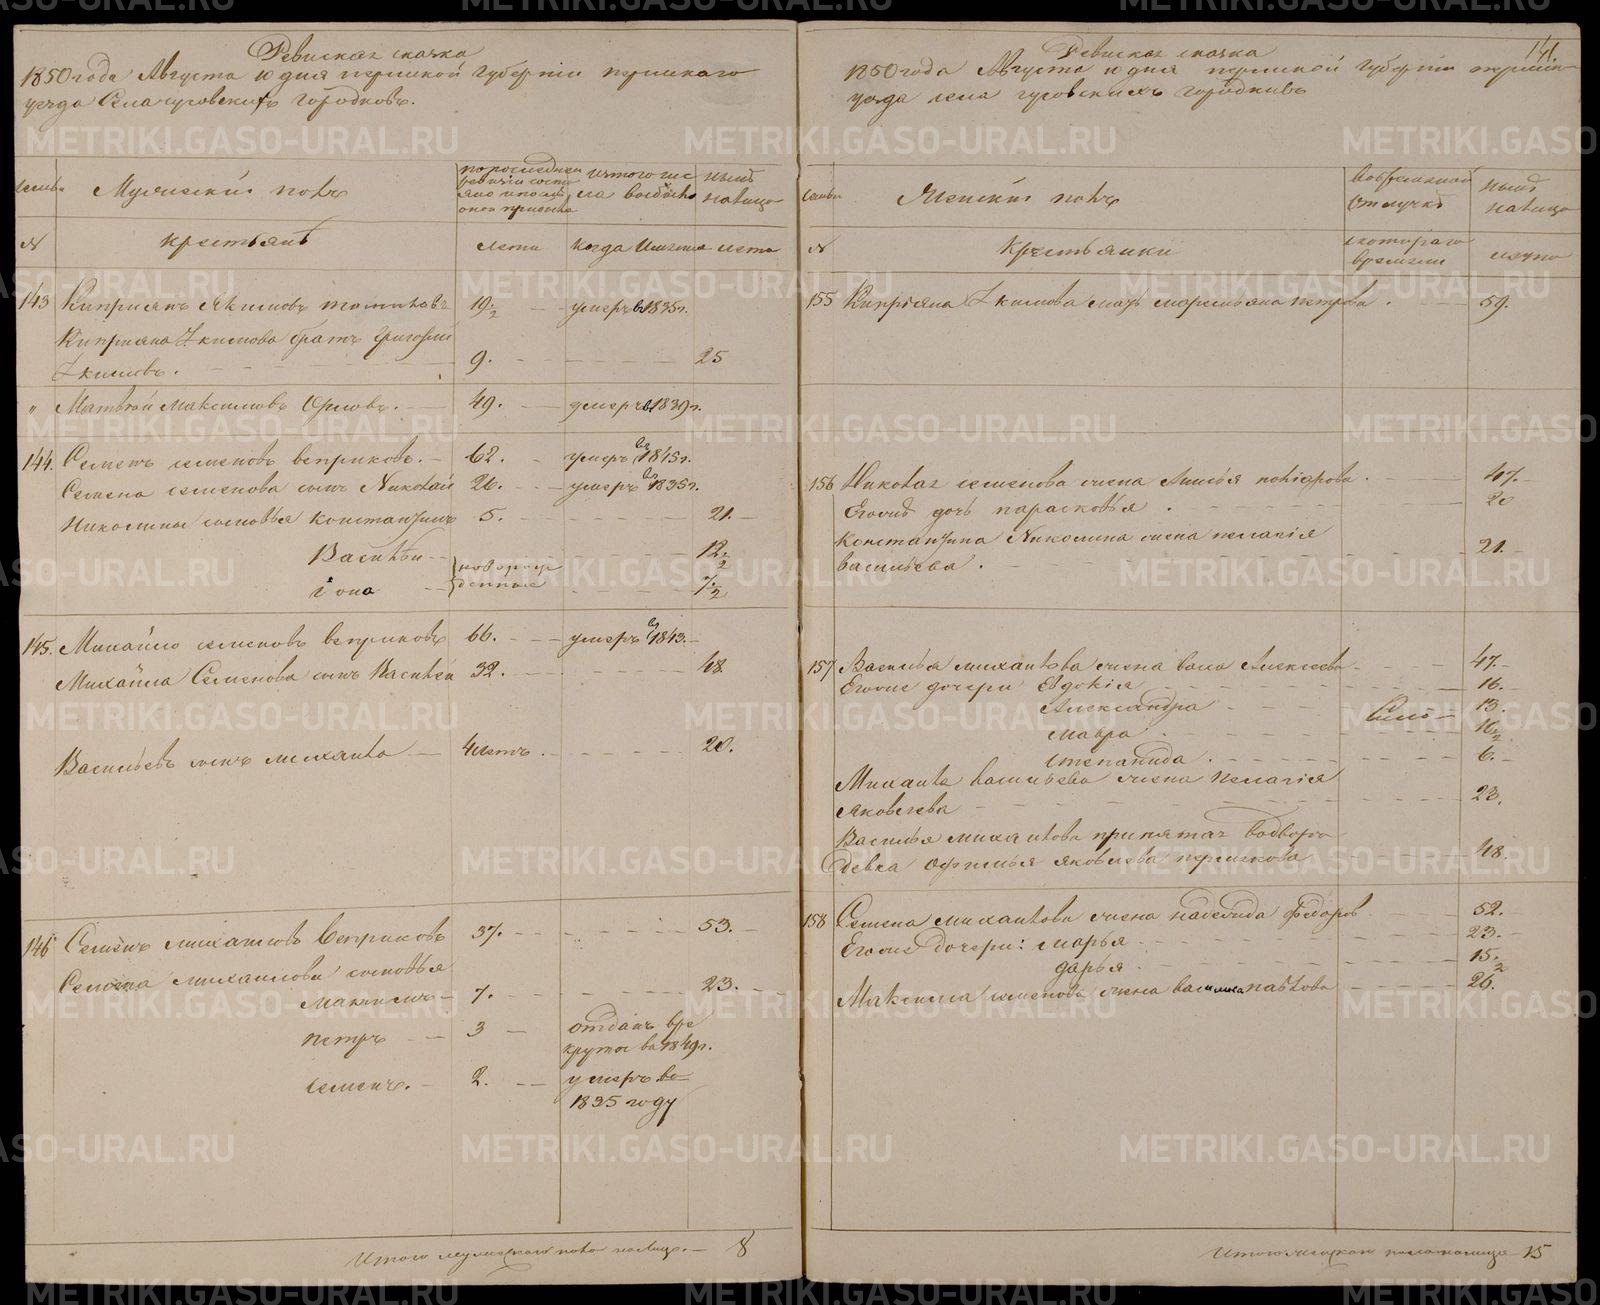 Ревиская сказка
1850 года Августа 10 дня пермской губернии пермскаго
уезда Села чусовских городков.
семьи
Мужеский полъ
по последней
ревизии состо
яло и после
оной прибыло
изтого чис
ла выбыло
ныне
налицо
№
крестьянъ
лета
когда Именно
лета
143 Киприянъ Якимовъ 19/2 умеръ в 1835 г.
Киприяна Якимова братъ Григорий
Якимовъ. 9. 25
" Матвей Максимовъ Орловъ. 49. умеръ в 1839 г.
144. Семенъ семеновъ веприковъ. 62. умеръ въ 1845 г.
Семена семенова сынъ Николай 26. умеръ въ 1835 г.
Николины сыновья константинъ 5. 21.
Василей новорож 12/2
Iона денные 7/2
145. Михайло семеновъ веприковъ 66. умеръ въ 1843.
Михайла Семенова сынъ Василей 32. 48
Васильевъ сынъ михайло 4 летъ. 20.
146 Семенъ михаиловъ Веприковъ 37. 53.
Семена михаилова сыновья
максимъ 7. 23.
петръ 3 отданъ вре
круты в 1849 г.
семенъ. 2. умеръ во
1835 году
Итого мужескаго пола налицо. 8
141.
Ревиская сказка
1850 года Августа 10 дня пермской губернии пермск
уезда села чусовскихъ городковъ
семьи
Женский полъ
вовременной
отлучке
ныне
налицо
№
Крестьянки
скотораго
времени
лета
155 Киприяна Якимова мать маремьяна петрова. 59.
156 Николая семенова жена 47.
Егоже дочь парасковья. 20
константина Николина жена пелагiя
васильева. 21.
157 Василья михайлова жена Алексеева 47.
Егоже дочери Евдокiя 16.
Александра 13.
мавра 10/2
степанида. 6.
Михаила васильева жена пелагiя
яковлева 23.
Василья михайлова принятая
девка Офимья яковлева 48.
158 Семена михайлова жена надежда федоров 52.
Егоже дочери: марья 23.
дарья 15/2
Максима семенова жена василиса павлова 26.
Итого женскаго пола налицо 15
METRIKI.GASO-URAL.RU